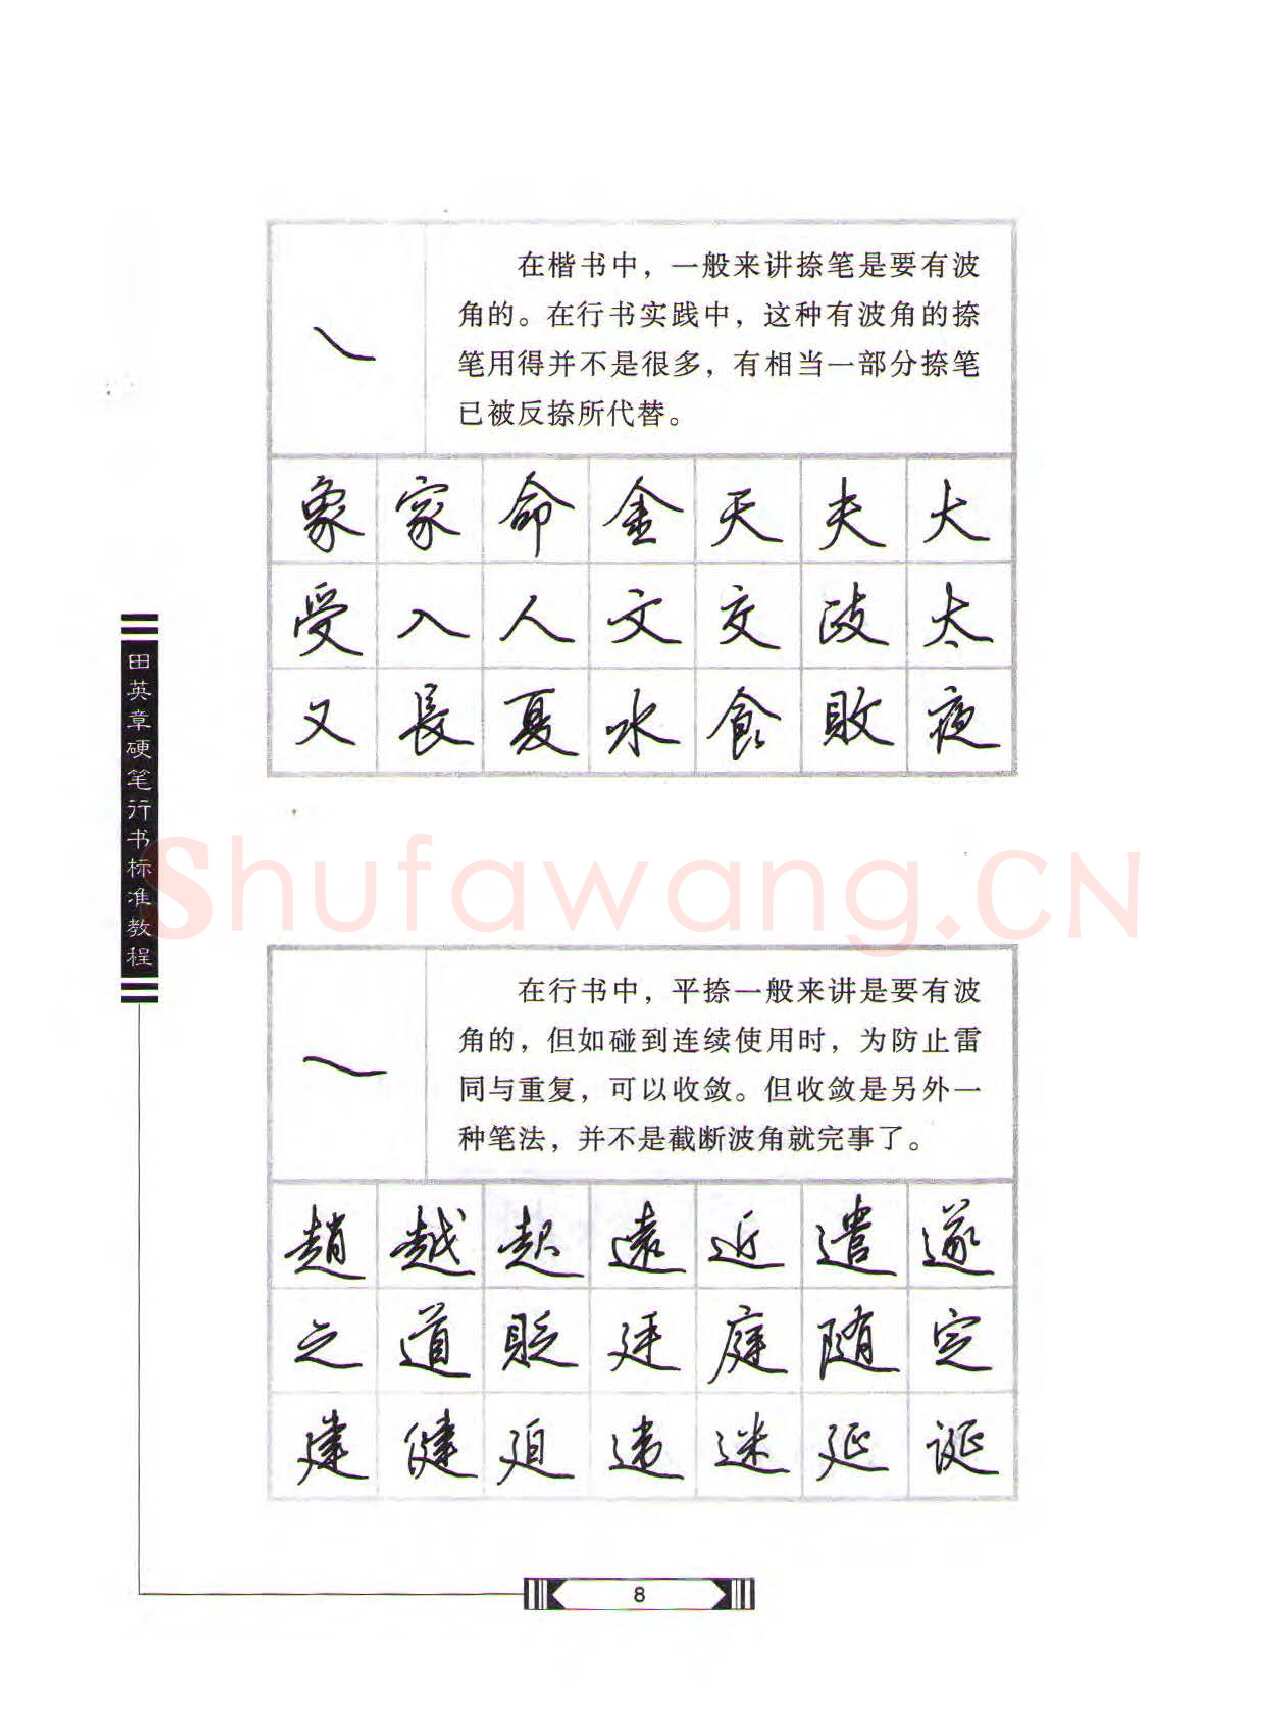 在楷书中，一般来讲捺笔是要有波
角的。在行书实践中，这种有波角的捺
笔用得并不是很多，有相当一部分捺笔
已被反捺所代替。
象家命金天夫大
受入人文交歧太
又長夏水食敗夜
田英章硬笔行书标准教程
Shufawang.CN
在行书中，平捺一般来讲是要有波
角的，但如碰到连续使用时，为防止雷
同与重复，可以收敛。但收敛是另外一
种笔法，并不是截断波角就完事了。
趙越起遠近遣遂
之道貶廷庭随定
建健廻違迷延诞
8